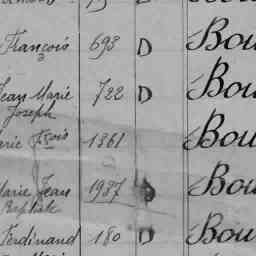 François 693 D Bou
Jean Marie 722 D Bou
Joseph
Marie Fçois 1361 Bou
Marie Jean 1987 D Bou
Baptiste
Ferdinand 180 D Bou